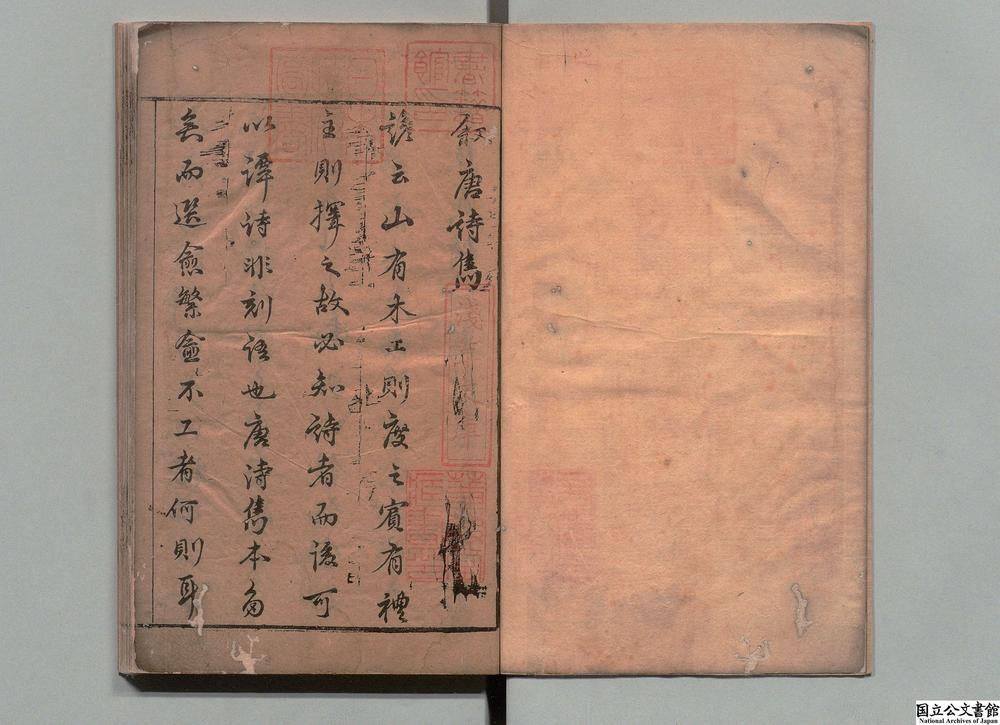 叙唐詩雋
諺云山有木工則度之賓有禮
主則擇之故必知詩者而後可
以譚詩非刻語也唐詩雋本勿
矣而選愈繁愈不工者何則耳
国立公文書館
National Archives of Japan